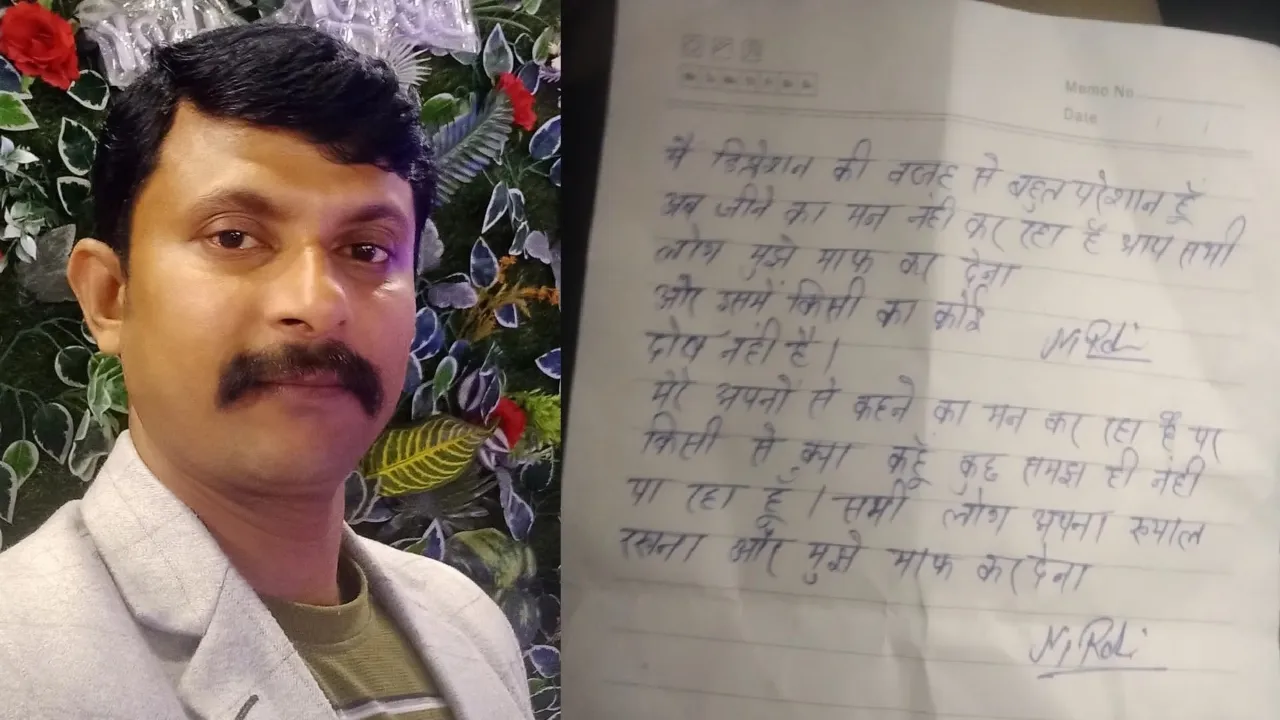 Memo No.
Date
मै डिप्रेशन की वजह से बहुत परेशान हूँ
अब जीने का मन नंही कर रहा है आप सभी
लोग मुझे माफ कर देना
और इसमें किसी का कोई
दोष नंही है।
मेरे अपनों से कहने का मन कर रहा है पर
किसी से क्या कहूँ कुछ समझ ही नंही
पा रहा हूँ। सभी लोग अपना ख्याल
रखना और मुझे माफ कर देना